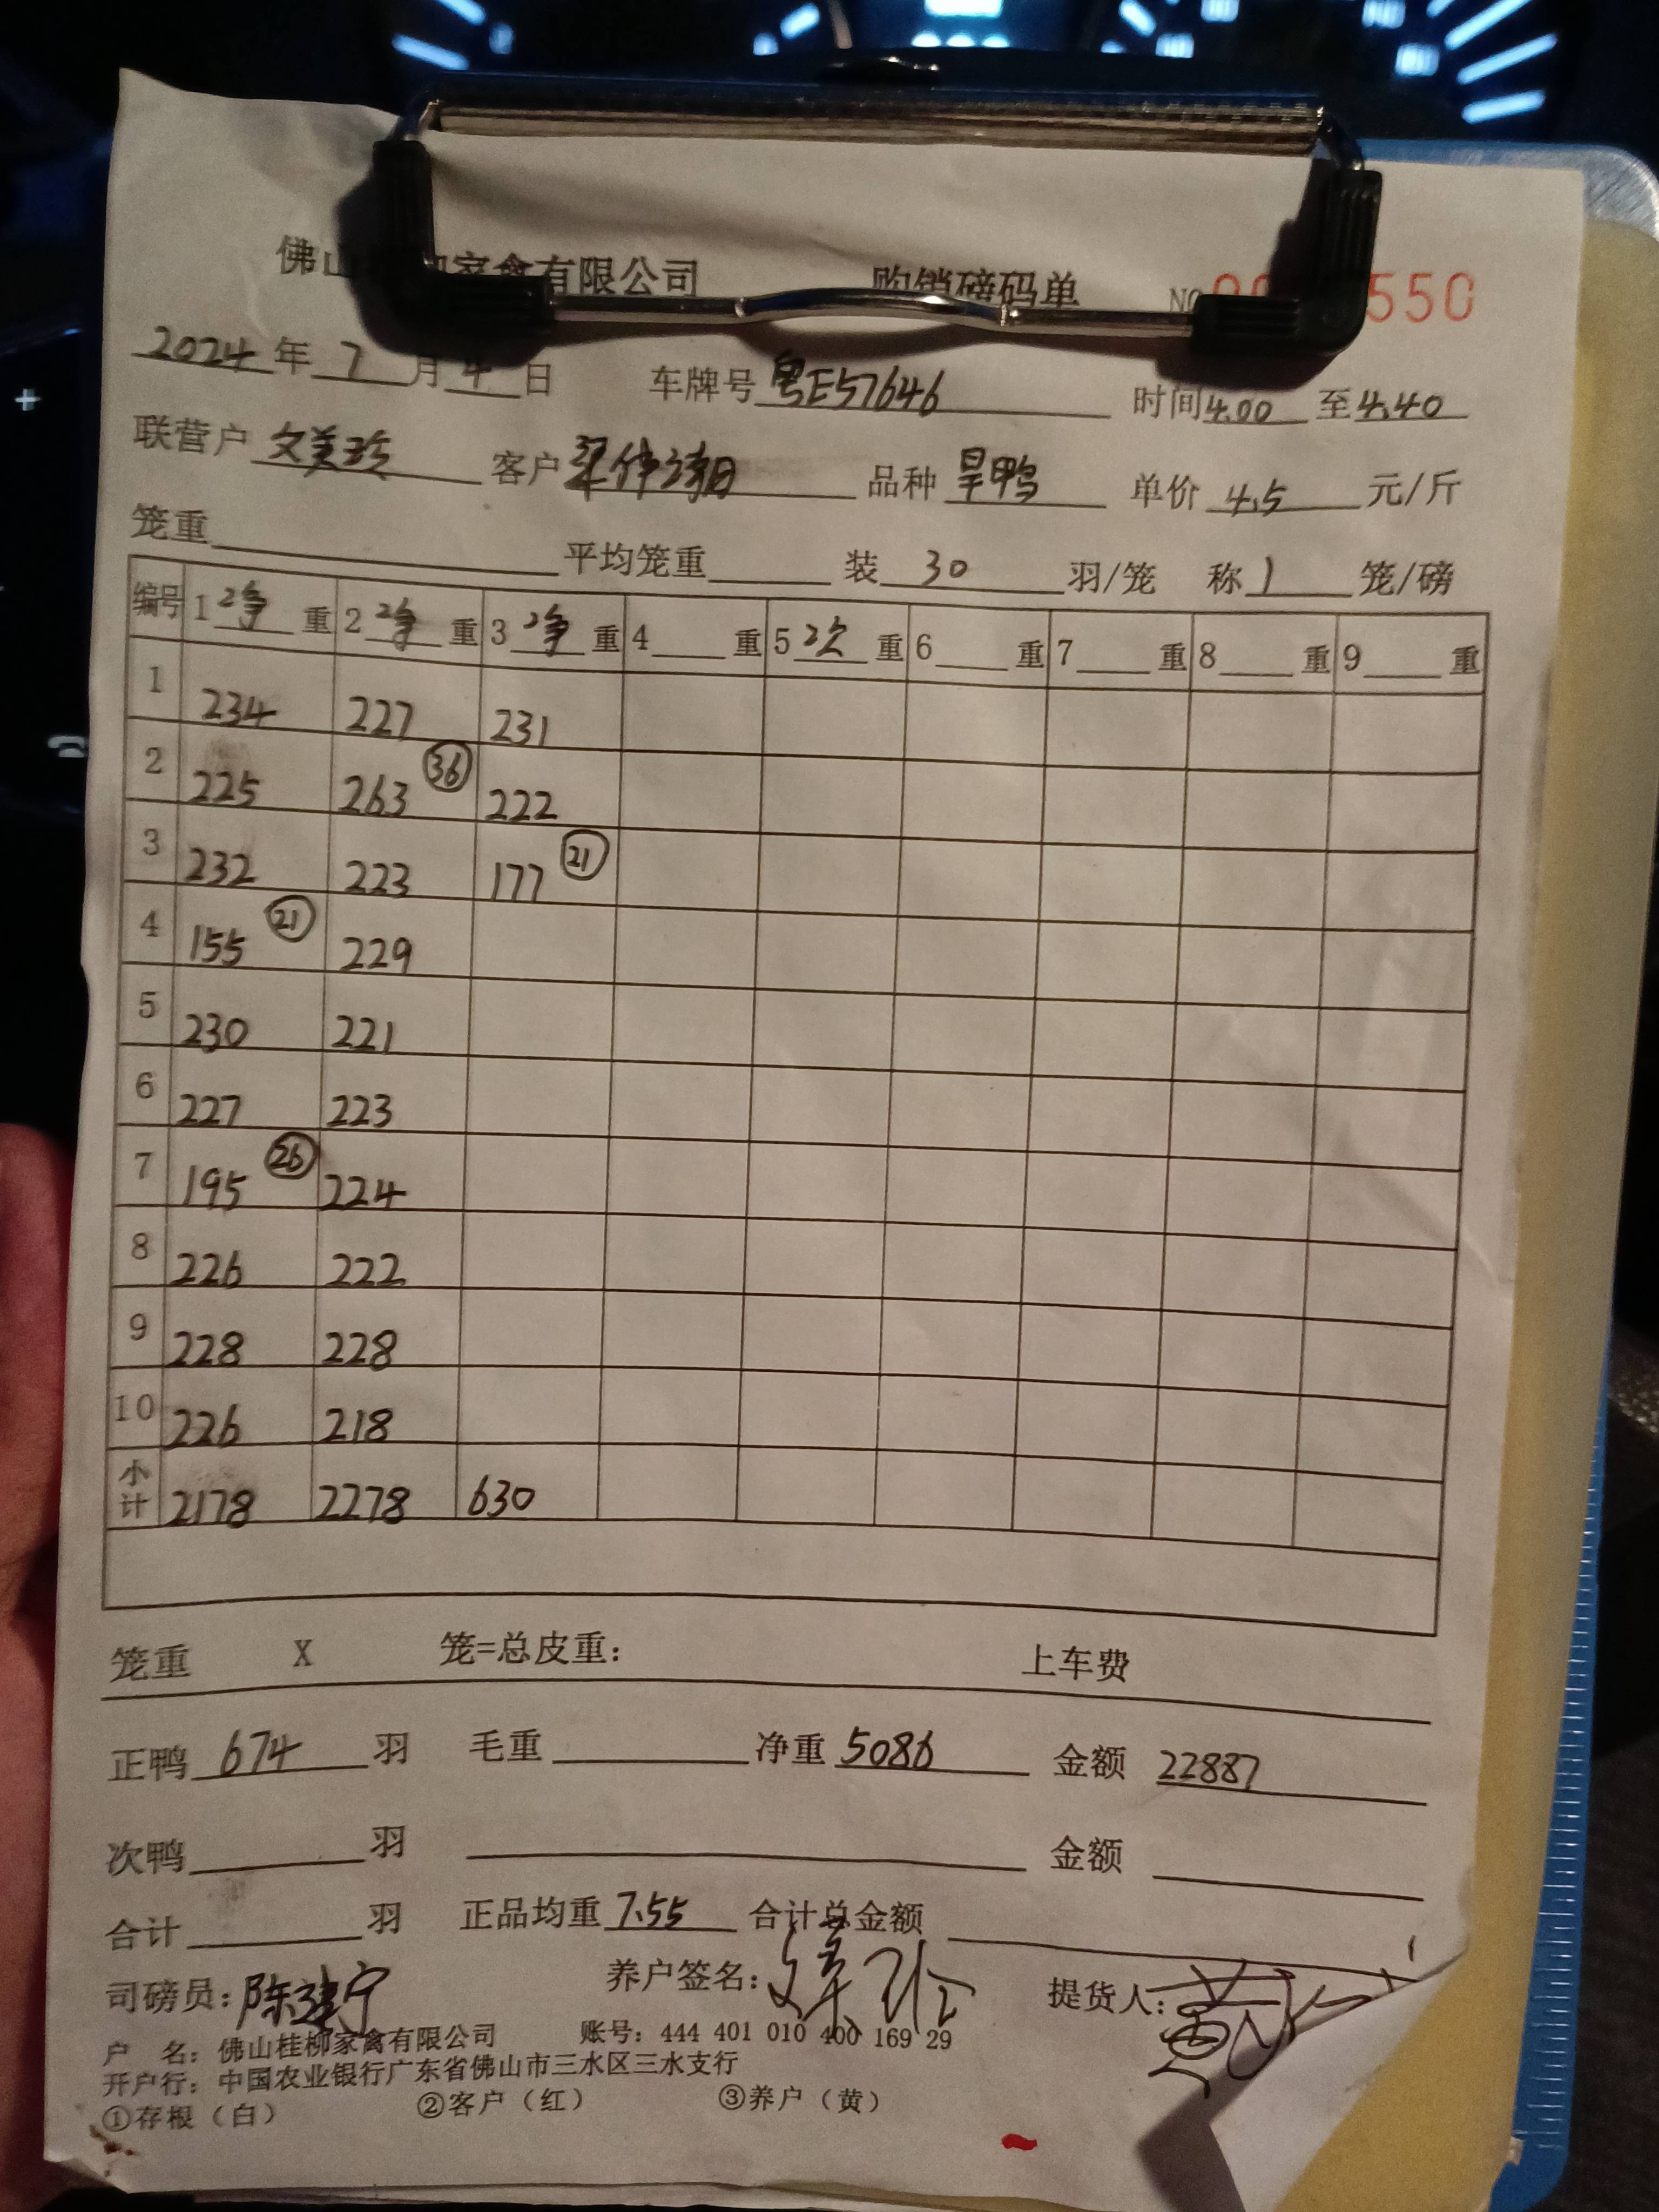 佛山桂柳家禽有限公司 购销磅码单 NO 550
2024年7月4日 车牌号粤E57646 时间4.00至4.40
联营户文美玲 客户梁伟 品种旱鸭 单价4.5元/斤
笼重 平均笼重 装30羽/笼 称1笼/磅
编号 1净重 2净重 3净重 4重 5次重 6重 7重 8重 9重
1 234 227 231
2 225 263 36 222
3 232 223 177 21
4 155 21 229
5 230 221
6 227 223
7 195 26 224
8 226 222
9 228 228
10 226 218
小计 2178 2278 630
笼重 X 笼=总皮重: 上车费
正鸭674羽 毛重 净重5086 金额22887
次鸭 羽 金额
合计 羽 正品均重7.55 合计总金额
司磅员:陈建宁 养户签名: 提货人:
户 名:佛山桂柳家禽有限公司 账号:444 401 010 400 169 29
开户行:中国农业银行广东省佛山市三水区三水支行
①存根(白) ②客户(红) ③养户(黄)